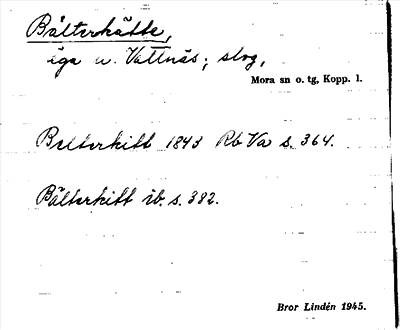 Bälterhätte,
äga u. Vattnäs; skog,
Mora sn o. tg, Kopp. l.
Belterhitt 1843 Rb Va s. 364.
Bälterhitt ib. s. 382.
Bror Lindén 1945.